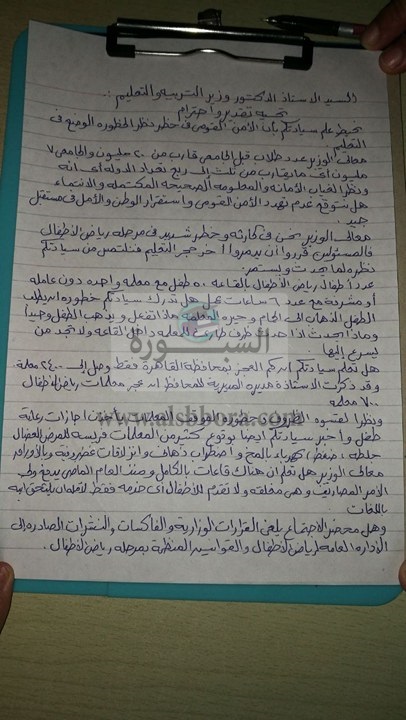 السيد الاستاذ الدكتور وزير التربيه والتعليم :.
تحيه تقدير واحترام
نحيط علم سيادتكم بأن الأمن القومى فى خطر نظر الخطوره الوضع فى
التعليم
معالى الوزير عدد طلاب قبل الجامعى قارب من ٢٠ مليون والجامعى ٧
مليون أى ما يقارب من ثلث إلى ربع تعداد الدوله أى انه
ونظرا لغياب الأمانه والمعلومه الصحيحه المكتمله والانتماء
هل نتوقع عدم تهدد الأمن القومى واستقرار الوطن والأمل فى مستقبل
جيد .
معالى الوزير نحن فى كارثه وخطر شديد فى مرحله رياض الأطفال
فالمسئولين قرروا أن يدمروا آخر حجر التعليم فنلتمس من سيادتكم
نظره لما يحدث ويستمر :
عدد أطفال رياض الأطفال بالقاعه ٥٠ طفل مع معلمه واحده دون عامله
أو مشرفة مع عدد ٦ ساعات عمل هل تدرك سيادتكم خطوره ان يطلب
الطفل الذهاب إلى الحمام وحيره المعلمه ماذا تفعل ويذهب الطفل وحيداً
وماذا يحدث اذا حدث ظرف طارىء للمعلمه داخل القاعه ولا تجد من
يسرع إليها .
هل تعلم سيادتكم ان كم العجز بمحافظة القاهرة فقط وصل إلى ٢٤٠٠ معلمة
وقد ذكرت الاستاذة مديره المديرية للمحافظ انه عجز معلمات رياض الأطفال
٧٠٠ معلمه
السبورة
www.alsbbora.com
ونظرا لقسوه الظروف وخطوره الموقف المعلمات تأخذن اجازات رعاية
طفل وأخبر سيادتكم ايضا بوقوع كثير من المعلمات فريسه للمرض العضال
جلطه ، ضغط ، كهرباء بالمخ واضطراب ذهانى وانزلاقات غضروفية وبالأورام
معالى الوزير هل تعلم ان هناك قاعات بالكامل ومنذ العام الماضى يدفع ولى
الأمر المصاريف وهى مغلقه ولا تقدم للأطفال أى خدمه فقط لأضمان يلتحق ابنه
باللغات
وهل محضر الاجتماع يلغى القرارات الوزارية والفاكسات والنشرات الصادره إلى
الإداره العامه لرياض الأطفال والقوانين المنظمة بمرحله رياض الأطفال .